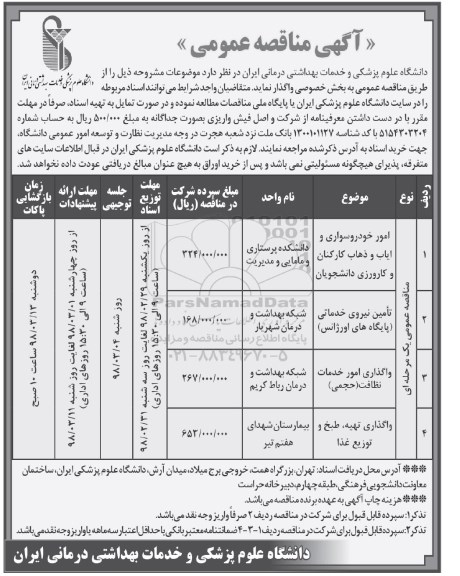 « آگهی مناقصه عمومی »
دانشگاه علوم پزشکی و خدمات بهداشتی درمانی ایران
دانشگاه علوم پزشکی و خدمات بهداشتی درمانی ایران در نظر دارد موضوعات مشروحه ذیل را از
طریق مناقصه عمومی به بخش خصوصی واگذار نماید. متقاضیان واجد شرایط می توانند اسناد مربوطه
را در سایت دانشگاه علوم پزشکی ایران یا پایگاه ملی مناقصات مطالعه نموده و در صورت تمایل به تهیه اسناد، صرفاً در مهلت
مقرر با در دست داشتن معرفینامه از شرکت و اصل فیش واریزی بصورت جداگانه به مبلغ ۵۰۰/۰۰۰ ریال به حساب شماره
۵۱۵۴۳۰۳۲۰۴ با کد شناسه ۱۳۰۰۱۰۱۱۲۷ بانک ملت نزد شعبه هجرت در وجه مدیریت نظارت و توسعه امور عمومی دانشگاه،
جهت خرید اسناد به آدرس ذکرشده مراجعه نمایند. لازم به ذکر است دانشگاه علوم پزشکی ایران در قبال اطلاعات سایت های
متفرقه، پذیرای هیچگونه مسئولیتی نمی باشد و پس از خرید اوراق به هیچ عنوان مبالغ دریافتی عودت داده نخواهد شد.
ردیف
نوع
موضوع
نام واحد
مبلغ سپرده شرکت در مناقصه (ریال)
مهلت توزیع اسناد
جلسه توجیهی
مهلت ارائه پیشنهادات
زمان بازگشایی پاکات
مناقصه عمومی یک مرحله ای
۱
امور خودروسواری و ایاب و ذهاب کارکنان و کارورزی دانشجویان
دانشکده پرستاری و مامایی و مدیریت
۳۲۴/۰۰۰/۰۰۰
۲
تأمین نیروی خدماتی (پایگاه های اورژانس)
شبکه بهداشت و درمان شهریار
۱۶۸/۰۰۰/۰۰۰
۳
واگذاری امور خدمات نظافت(حجمی)
شبکه بهداشت و درمان رباط کریم
۲۶۷/۰۰۰/۰۰۰
۴
واگذاری تهیه، طبخ و توزیع غذا
بیمارستان شهدای هفتم تیر
۶۵۲/۰۰۰/۰۰۰
از روز یکشنبه ۹۸/۰۲/۲۹ لغایت روز سه شنبه ۹۸/۰۲/۳۱ (ساعت ۹ الی ۱۵:۳۰ روزهای اداری)
روز شنبه ۹۸/۰۳/۰۴
از روز چهارشنبه ۹۸/۰۳/۰۱ لغایت روز شنبه ۹۸/۰۳/۱۱ (ساعت ۹ الی ۱۵:۳۰ روزهای اداری)
دوشنبه ۹۸/۰۳/۱۳ ساعت ۱۰ صبح
ParsNamadData
پایگاه اطلاع رسانی مناقصه و مزایده
۰۲۱-۸۸۳۴۹۶۷۰-۵
*** آدرس محل دریافت اسناد: تهران، بزرگراه همت، خروجی برج میلاد، میدان آرش، دانشگاه علوم پزشکی ایران، ساختمان
معاونت دانشجویی فرهنگی، طبقه چهارم، دبیرخانه حراست
*** هزینه چاپ آگهی به عهده برنده مناقصه می باشد.
تذکر۱: سپرده قابل قبول برای شرکت در مناقصه ردیف ۲ صرفاً واریز وجه نقد می باشد.
تذکر۲: سپرده قابل قبول برای شرکت در مناقصه ردیف ۱-۳-۴ ضمانتنامه معتبر بانکی با حداقل اعتبار سه ماهه یا واریز وجه نقد می باشد.
دانشگاه علوم پزشکی و خدمات بهداشتی درمانی ایران